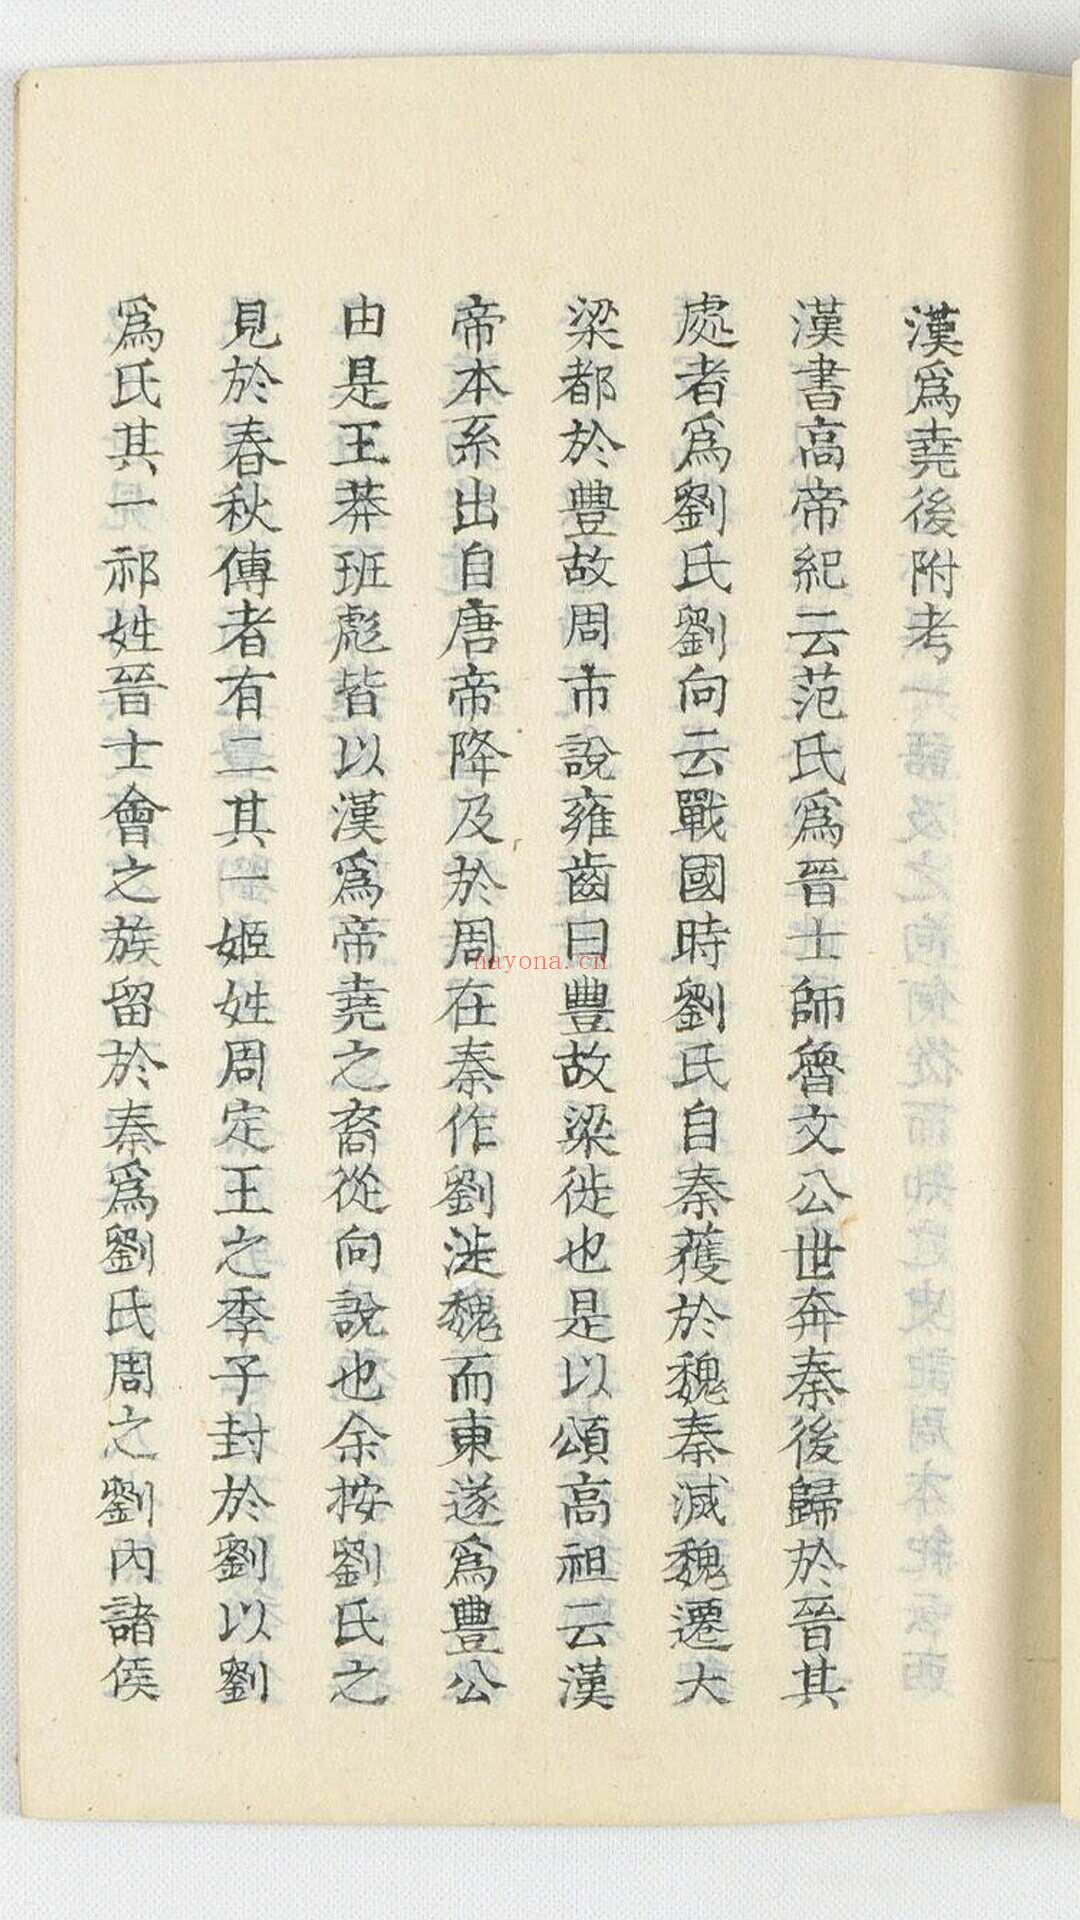 漢爲堯後附考
漢書高帝紀云范氏爲晉士師魯文公世奔秦後歸於晉其
處者爲劉氏劉向云戰國時劉氏自秦獲於魏秦滅魏遷大
梁都於豐故周市說雍齒曰豐故梁徙也是以頌高祖云漢
帝本系出自唐帝降及於周在秦作劉涉魏而東遂爲豐公
由是王莽班彪皆以漢爲帝堯之裔從向說也余按劉氏之
見於春秋傳者有二其一姬姓周定王之季子封於劉以劉
爲氏其一祁姓晉士會之族留於秦爲劉氏周之劉內諸侯
nayona.cn